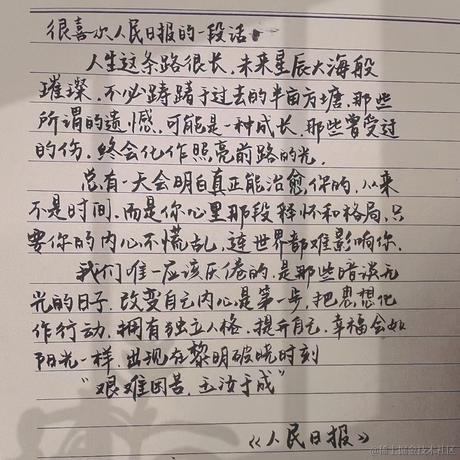 很喜欢人民日报的一段话：
人生这条路很长，未来星辰大海般
璀璨，不必踌躇于过去的半亩方塘，那些
所谓的遗憾，可能是一种成长，那些曾受过
的伤，终会化作照亮前路的光。
总有一天会明白真正能治愈你的，从来
不是时间，而是你心里那段释怀和格局，只
要你的内心不慌乱，连世界都难影响你。
我们唯一应该厌倦的，是那些暗淡无
光的日子，改变自己内心是第一步，把思想化
作行动，拥有独立人格，提升自己，幸福会如
阳光一样，出现在黎明破晓时刻
“艰难困苦，玉汝于成”
《人民日报》
@稀土掘金技术社区